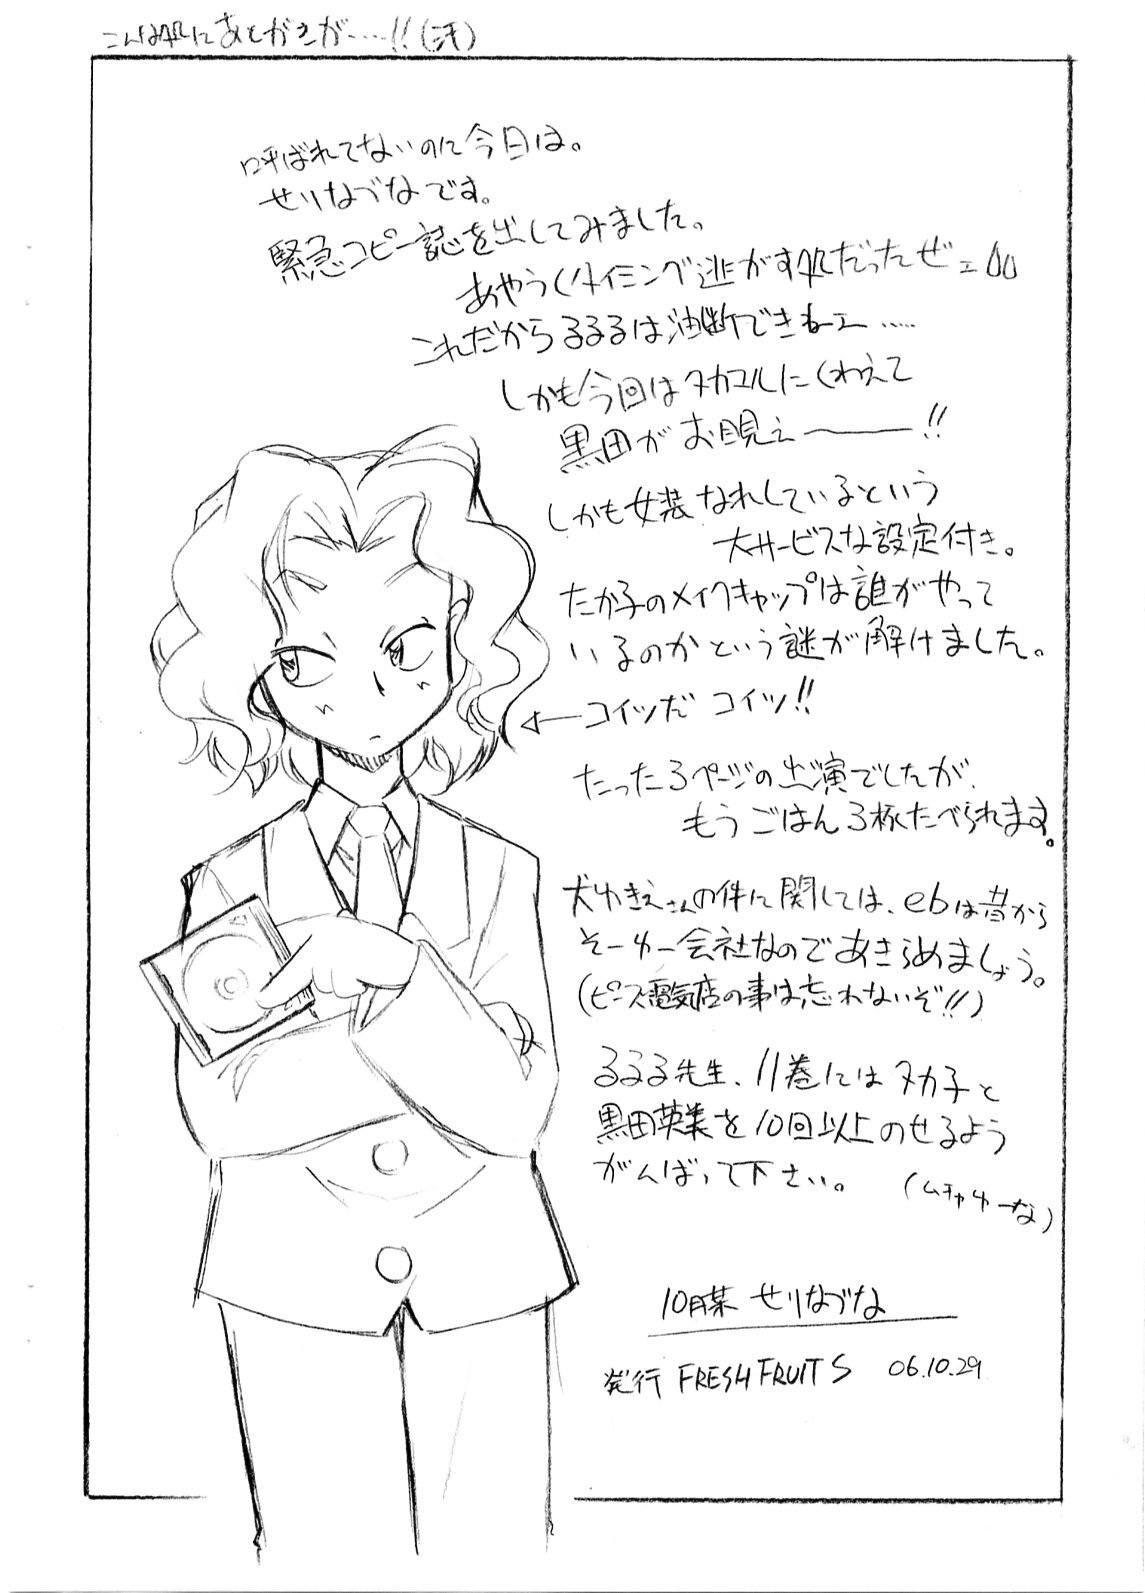 こんな処にあとがきが……!!(汗)
呼ばれてないのに今日は。
せりなづなです。
緊急コピー誌を出してみました。
あやうくタイミング逃がす処だったぜ
これだからるるるは油断できねー……
しかも今回はタカコルにくわえて
黒田がお目見え―――!!
しかも女装なれしているという
大サービスな設定付き。
たか子のメイクキャップは誰がやって
いるのかという謎が解けました。
←コイツだ コイツ!!
たった3ページの出演でしたが、
もうごはん3杯たべられます。
犬ゆきえさんの件に関しては、ebは昔から
そーゆー会社なのであきらめましょう。
(ピース電気店の事は忘れないぞ!!)
るるる先生、11巻にはタカ子と
黒田英美を10回以上のせるよう
がんばって下さい。
(ムチャゆーな)
せりなづな
発行 FRESH FRUITS 06.10.29